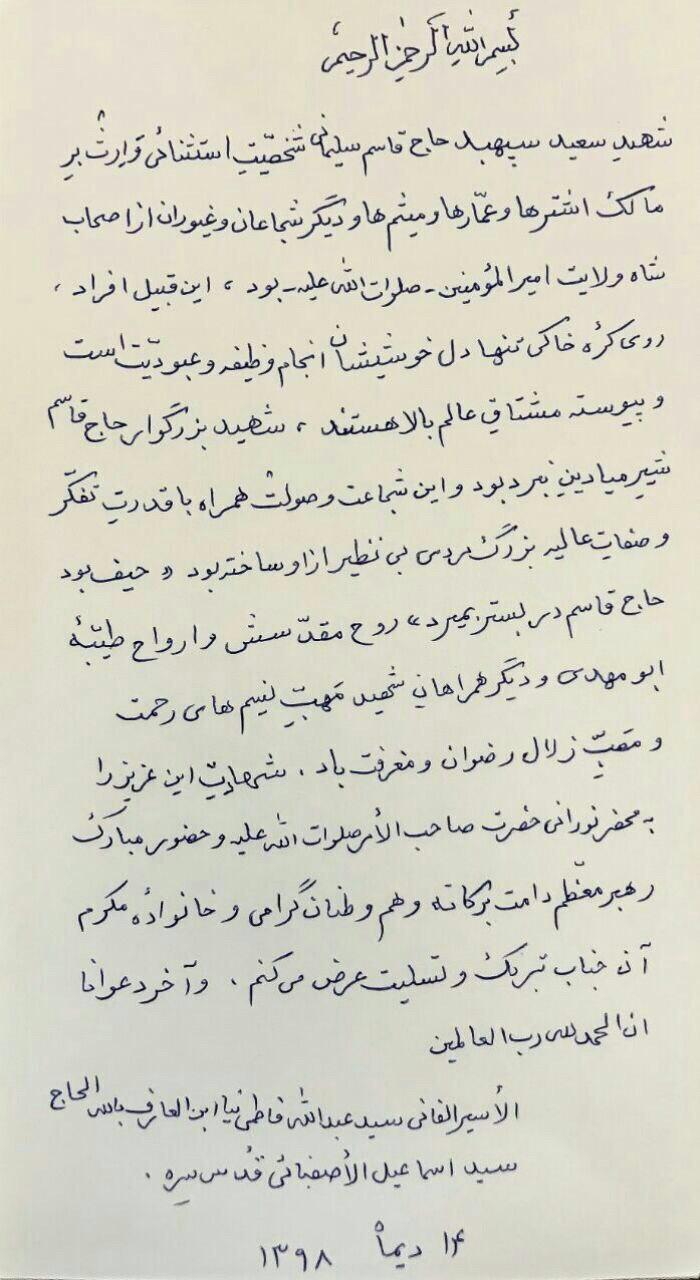 بسم الله الرحمن الرحیم
شهید سعید سپهبد حاج قاسم سلیمانی شخصیّتِ استثنائی و ارث برِ
مالک اشترها و عمّارها و میثم ها و دیگر شجاعان و غیوران از اصحاب
شاه ولایت امیرالمؤمنین - صلوات الله علیه - بود ، این قبیل افراد ،
روی کرهٔ خاکی تنها دل خوشیشان انجام وظیفه و عبودیّت است
و پیوسته مشتاقِ عالم بالا هستند ، شهید بزرگوار حاج قاسم
شیرِ میادینِ نبرد بود و این شجاعت و صولت همراه با قدرتِ تفکّر
و صفاتِ عالیه بزرگ مردی بی نظیر از او ساخته بود « حیف بود
حاج قاسم در بستر بمیرد » روح مقدّسش و ارواح طیّبهٔ
ابو مهدی و دیگر همراهانِ شهید مَهبِّ نسیم های رحمت
و مَصَبِّ زلال رضوان و مغفرت باد . شهادتِ این عزیز را
به محضر نورانی حضرت صاحب الأمر صلوات الله علیه و حضور مبارک
رهبر معظّم دامت برکاته و هم وطنان گرامی و خانوادهٔ مکرم
آن جناب تبریک و تسلیت عرض می کنم . و آخر دعوانا
ان الحمد لله رب العالمین
الأسیر الفانی سید عبدالله فاطمی نیا ابن العارف بالله الحاج
سید اسماعیل الأصفیائی قُدس سِره .
۱۴ دیماه ۱۳۹۸